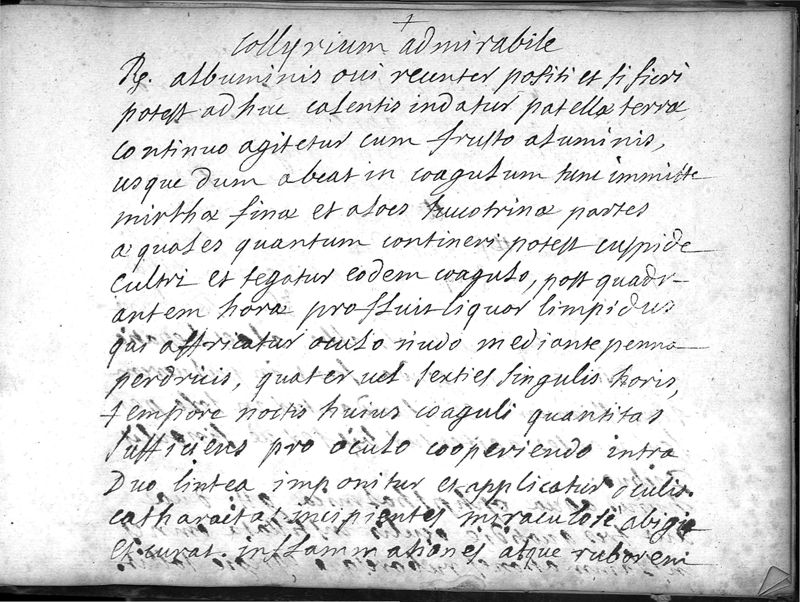 +
collyrium admirabile
℞. albuminis oui recenter positi et si fieri
potest ad huc calentis indatur patellæ terræ,
continuo agitetur cum frusto aluminis,
usque dum abeat in coagulum tunc immitte
mirrhæ finæ et aloes succotrinæ partes
æquales quantum contineri potest cuspide
cultri et tegatur eodem coagulo, post quadr-
antem horæ profluit liquor limpidus
qui affricatur oculo nudo mediante penna
perdricis, quater uel sexties singulis horis,
tempore noctis huius coaguli quantitas
sufficiens pro oculo cooperiendo intra
Duo lintea imponitur et applicatur oculis.
catharactas incipientes miraculose abigit
et curat. inflammationes atque ruborem